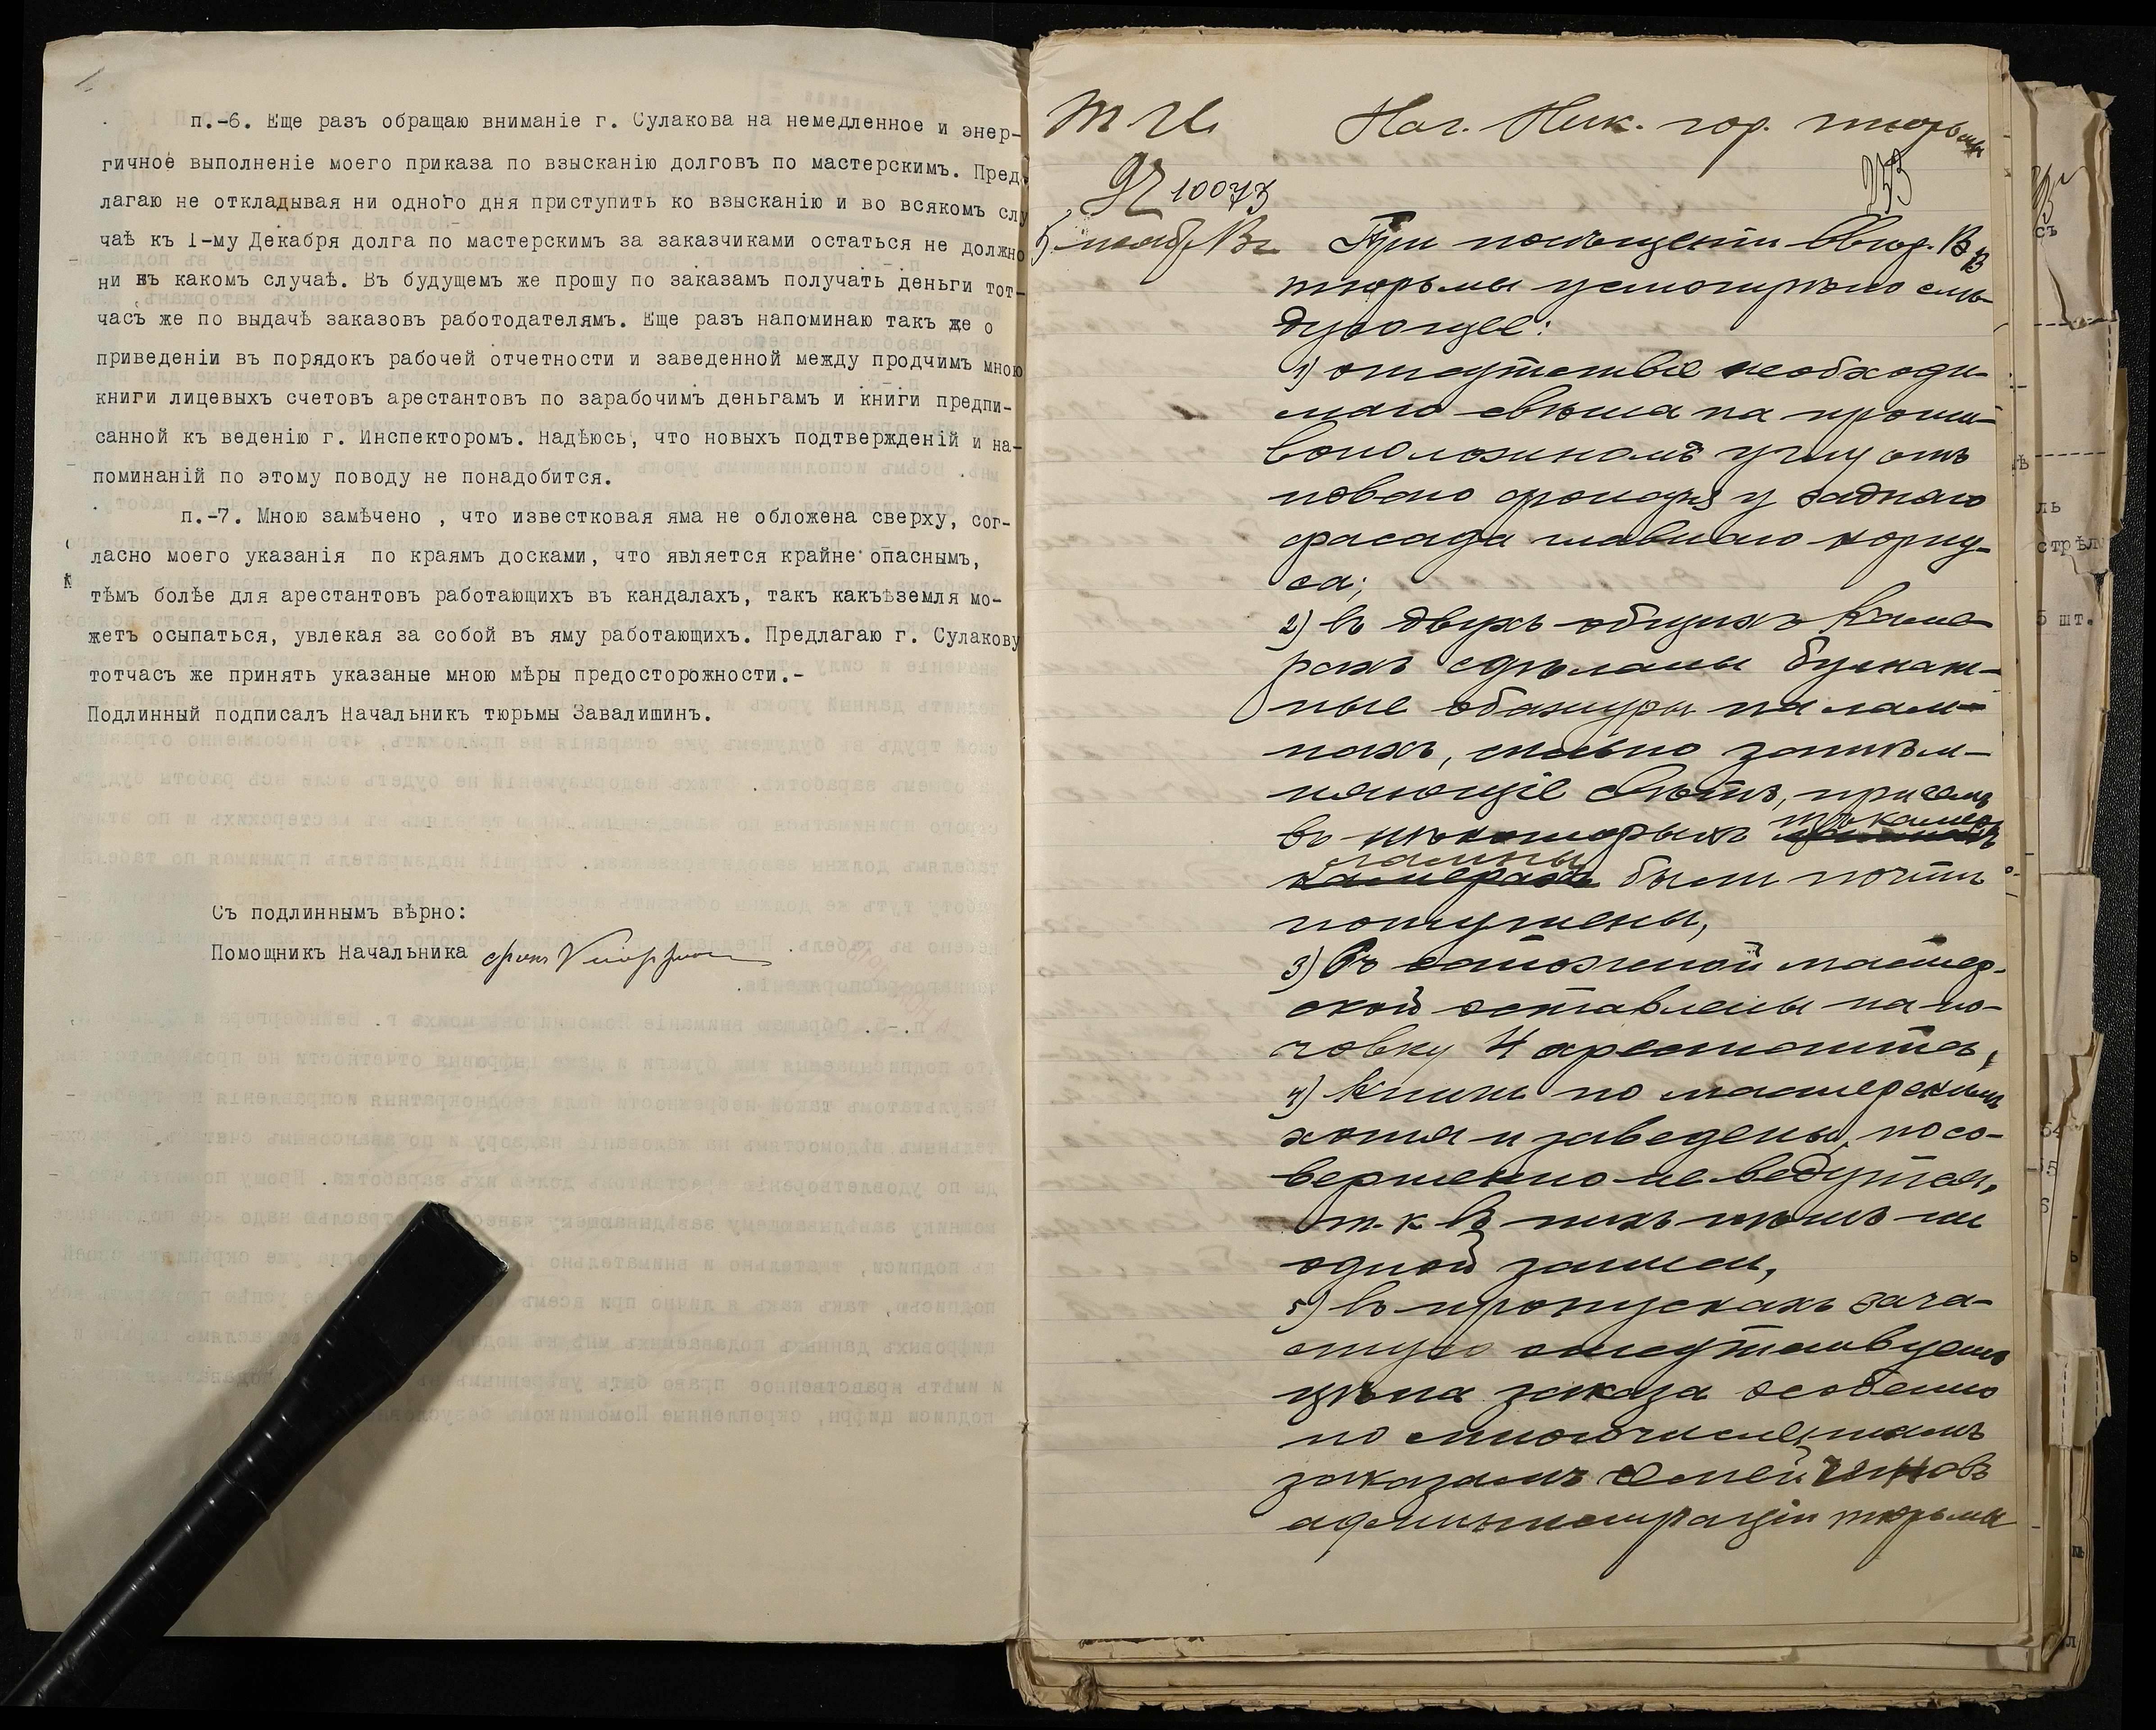 п.-6. Еще разъ обращаю вниманіе г. Сулакова на немедленное и энер-
гичное выполненіе моего приказа по взысканію долговъ по мастерскимъ. Пред-
лагаю не откладывая ни одного дня приступить ко взысканію и во всякомъ слу
чаѣ къ 1-му Декабря долга по мастерскимъ за заказчиками остаться не должно
ни въ какомъ случаѣ. Въ будущемъ же прошу по заказамъ получать деньги тот-
часъ же по выдачѣ заказовъ работодателямъ. Еще разъ напоминаю такъ же о
приведеніи въ порядокъ рабочей отчетности и заведенной между продчимъ мною
книги лицевыхъ счетовъ арестантовъ по зарабочимъ деньгамъ и книги предпи-
санной къ веденію г. Инспекторомъ. Надѣюсь, что новыхъ подтвержденій и на-
поминаній по этому поводу не понадобится.
п.-7. Мною замѣчено , что известковая яма не обложена сверху, сог-
ласно моего указанія по краямъ досками, что является крайне опаснымъ,
тѣмъ болѣе для арестантовъ работающихъ въ кандалахъ, такъ какъ земля мо-
жетъ осыпаться, увлекая за собой въ яму работающихъ. Предлагаю г. Сулакову
тотчасъ же принять указаные мною мѣры предосторожности.-
Подлинный подписалъ Начальникъ тюрьмы Завалишинъ.
Съ подлиннымъ вѣрно:
Помощникъ Начальника фонъ
Т И
Нач. Ник. гор. тюрьмы
253
№ 10073
5 нояб. 13 г.
При посѣщеніи ввѣр. В
тюрьмы усмотрѣно слѣ-
дующее:
1) отсутствіе необходи-
маго свѣта на проти-
воположномъ углу отъ
новаго фонаря у задняго
фасада главнаго корпу-
са;
2) въ двухъ общихъ каме-
рахъ сдѣланы бумаж-
ные абажуры на лам-
пахъ, сильно затем-
няющіе свѣтъ, причемъ
въ нѣкоторыхъ камер.
лампы
камерахъ были почти
потушены,
3) Въ сапожной мастер-
ской оставлены на но-
човку 4 арестанта,
4) книги по мастерскимъ
хотя и заведены, но со-
вершенно не ведутся,
т. к. въ нихъ нѣтъ ни
одной записи,
5) въ пропускахъ зача-
стую отсутствуетъ
цѣна заказа особенно
по многочисленнымъ
заказамъ семей чиновъ
администраціи тюрьмы
съ
ль
стрѣл
5 шт.